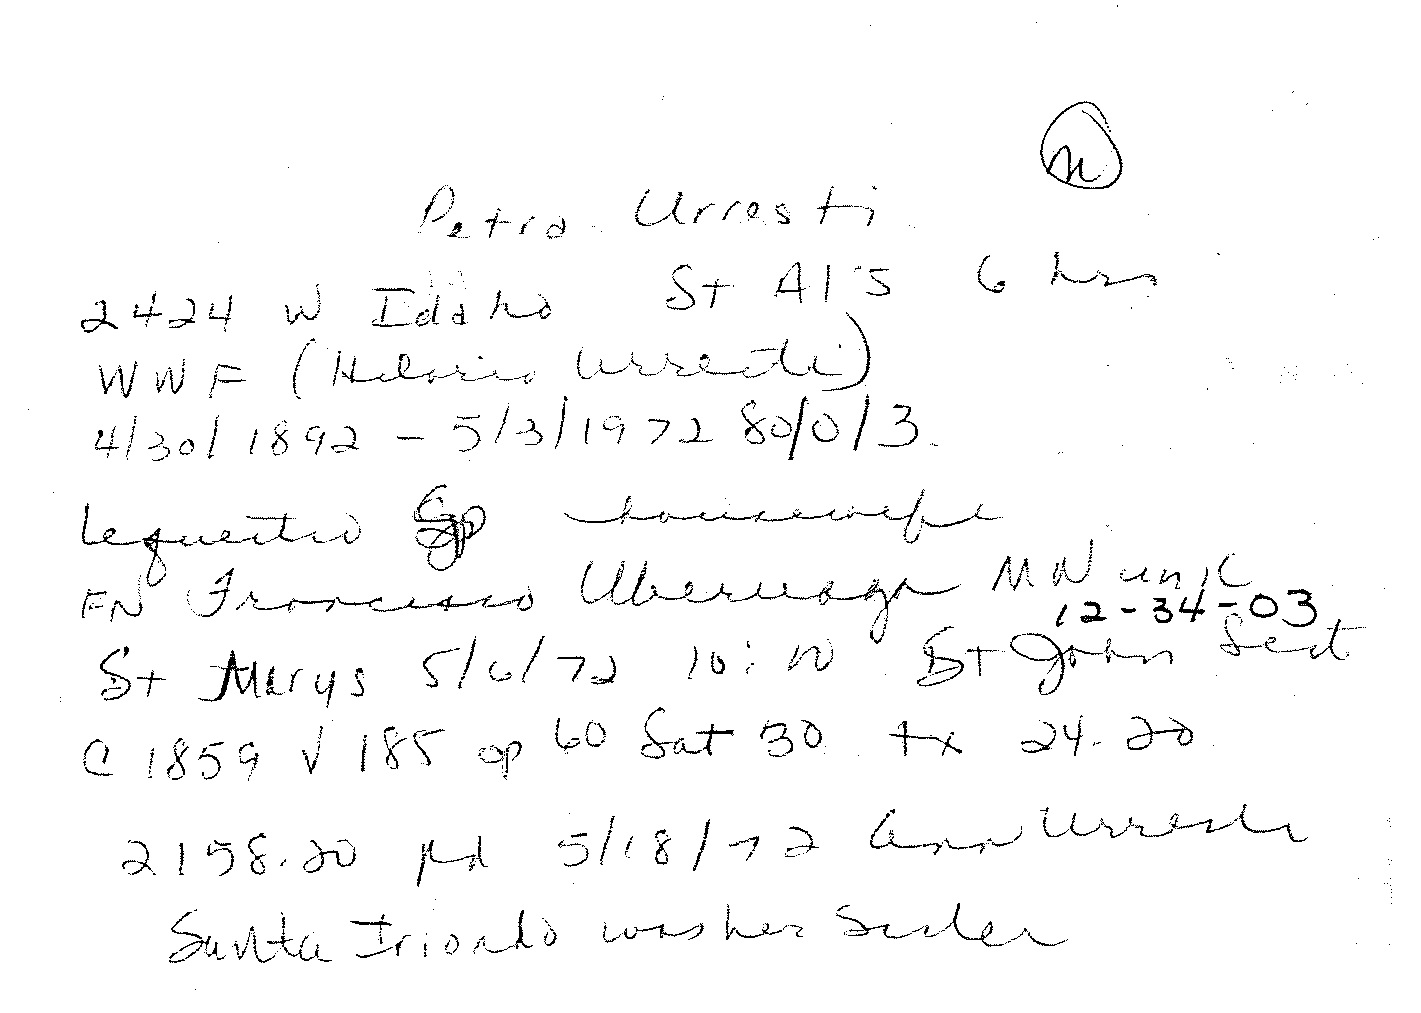 M
Petra Urresti
2424 W Idaho St Al's 6 hrs
WWF (Hilario Urresti)
4/30/1892 - 5/3/1972 80/0/3.
Lequeitio Sp housewife
FN Francisco Uberuaga MN unk
12-34-03
St Marys 5/6/72 10:10 St John Sect
C 1859 √ 185 op 60 Sat 30 tx 24.20
2158.20 pd 5/18/72 Ann Urresti
Santa Iriondo was her Sister